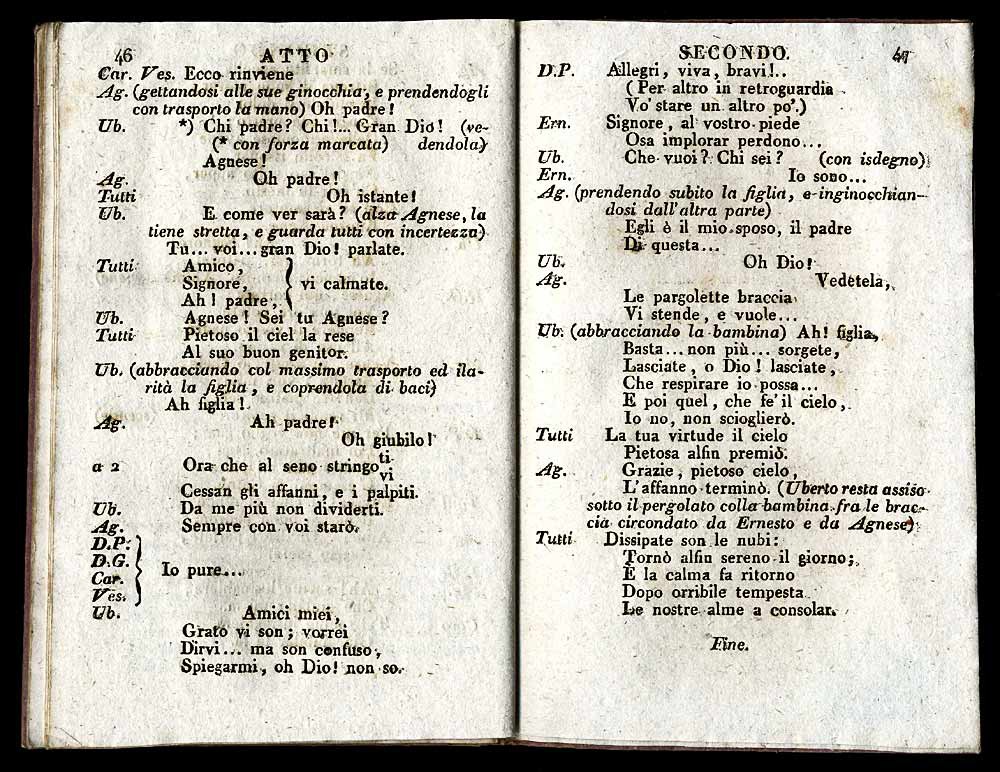 46 ATTO
Car. Ves. Ecco rinviene
Ag. (gettandosi alle sue ginocchia, e prendendogli
con trasporto la mano) Oh padre!
Ub. *) Chi padre? Chi!... Gran Dio! (ve-
(* con forza marcata) dendola)
Agnese!
Ag. Oh padre!
Tutti Oh istante!
Ub. E come ver sarà? (alza Agnese, la
tiene stretta, e guarda tutti con incertezza)
Tu... voi... gran Dio! parlate.
Tutti Amico,
Signore, } vi calmate.
Ah! padre,
Ub. Agnese! Sei tu Agnese?
Tutti Pietoso il ciel la rese
Al suo buon genitor.
Ub. (abbracciando col massimo trasporto ed ila-
rità la figlia, e coprendola di baci)
Ah figlia!
Ag. Ah padre!
Oh giubilo!
a 2 Ora che al seno stringo ti
vi
Cessan gli affanni, e i palpiti.
Ub. Da me più non dividerti.
Ag. Sempre con voi starò.
D.P.
D.G. } Io pure...
Car.
Ves.
Ub. Amici miei,
Grato vi son; vorrei
Dirvi... ma son confuso,
Spiegarmi, oh Dio! non so.
SECONDO. 47
D.P. Allegri, viva, bravi!..
(Per altro in retroguardia
Vo' stare un altro po'.)
Ern. Signore, al vostro piede
Osa implorar perdono...
Ub. Che vuoi? Chi sei? (con isdegno)
Ern. Io sono...
Ag. (prendendo subito la figlia, e inginocchian-
dosi dall'altra parte)
Egli è il mio sposo, il padre
Di questa...
Ub. Oh Dio!
Ag. Vedetela,
Le pargolette braccia
Vi stende, e vuole...
Ub. (abbracciando la bambina) Ah! figlia,
Basta... non più... sorgete,
Lasciate, o Dio! lasciate,
Che respirare io possa...
E poi quel, che fe' il cielo,
Io no, non scioglierò.
Tutti La tua virtude il cielo
Pietosa alfin premiò.
Ag. Grazie, pietoso cielo,
L'affanno terminò. (Uberto resta assiso
sotto il pergolato colla bambina fra le brac-
cia circondato da Ernesto e da Agnese)
Tutti Dissipate son le nubi:
Tornò alfin sereno il giorno;
E la calma fa ritorno
Dopo orribile tempesta
Le nostre alme a consolar.
Fine.